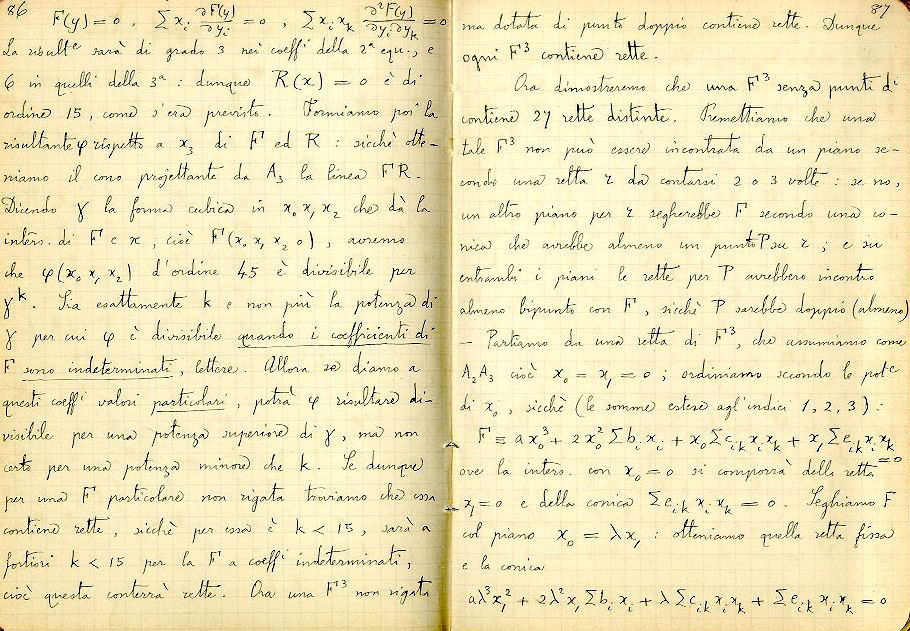 86
F(y) = 0 , Σ xᵢ ∂F(y)/∂yᵢ = 0 , Σ xᵢ xₖ ∂²F(y)/∂yᵢ∂yₖ = 0
La risultᵉ sarà di grado 3 nei coeffⁱ della 2ᵃ equ., e
6 in quelli della 3ᵃ : dunque R(x) = 0 è di
ordine 15, come s'era previsto. Formiamo poi la
risultante φ rispetto a x₃ di F ed R : sicchè otte-
niamo il cono projettante da A₃ la linea FR.
Dicendo γ la forma cubica in x₀ x₁ x₂ che dà la
inters. di F e π, cioè F(x₀ x₁ x₂ 0), avremo
che φ(x₀ x₁ x₂) d'ordine 45 è divisibile per
γᵏ. Sia esattamente k e non più la potenza di
γ per cui φ è divisibile quando i coefficienti di
F sono indeterminati, lettere. Allora se diamo a
questi coeffⁱ valori particolari, potrà φ risultare di-
visibile per una potenza superiore di γ, ma non
certo per una potenza minore che k. Se dunque
per una F particolare non rigata troviamo che essa
contiene rette, sicchè per essa è k < 15, sarà a
fortiori k < 15 per la F a coeffⁱ indeterminati,
cioè questa conterrà rette. Ora una F³ non rigata
87
ma dotata di punto doppio contiene rette. Dunque
ogni F³ contiene rette.
Ora dimostreremo che una F³ senza punti dⁱ
contiene 27 rette distinte. Premettiamo che una
tale F³ non può essere incontrata da un piano se-
condo una retta r da contarsi 2 o 3 volte : se no,
un altro piano per r segherebbe F secondo una co-
nica che avrebbe almeno un punto P su r ; e su
entrambi i piani le rette per P avrebbero incontro
almeno bipunto con F, sicchè P sarebbe doppio (almeno)
- Partiamo da una retta di F³, che assumiamo come
A₂A₃ cioè x₀ = x₁ = 0 ; ordiniamo secondo le potᵉ
di x₀, sicchè (le somme estese agl'indici 1, 2, 3) :
F ≡ ax₀³ + 2x₀² Σbᵢxᵢ + x₀Σcᵢₖxᵢxₖ + x₁Σeᵢₖxᵢxₖ = 0
ove la inters. con x₀ = 0 si comporrà della retta
x₁ = 0 e della conica Σeᵢₖxᵢxₖ = 0. Seghiamo F
col piano x₀ = λx₁ : otteniamo quella retta fissa
e la conica
aλ³x₁² + 2λ²x₁Σbᵢxᵢ + λΣcᵢₖxᵢxₖ + Σeᵢₖxᵢxₖ = 0